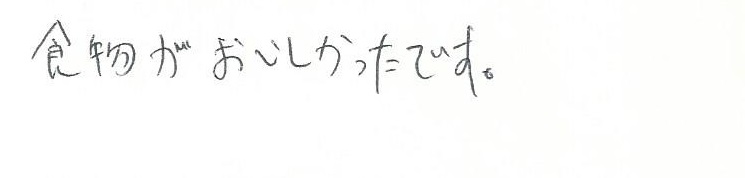 食物がおいしかったです。